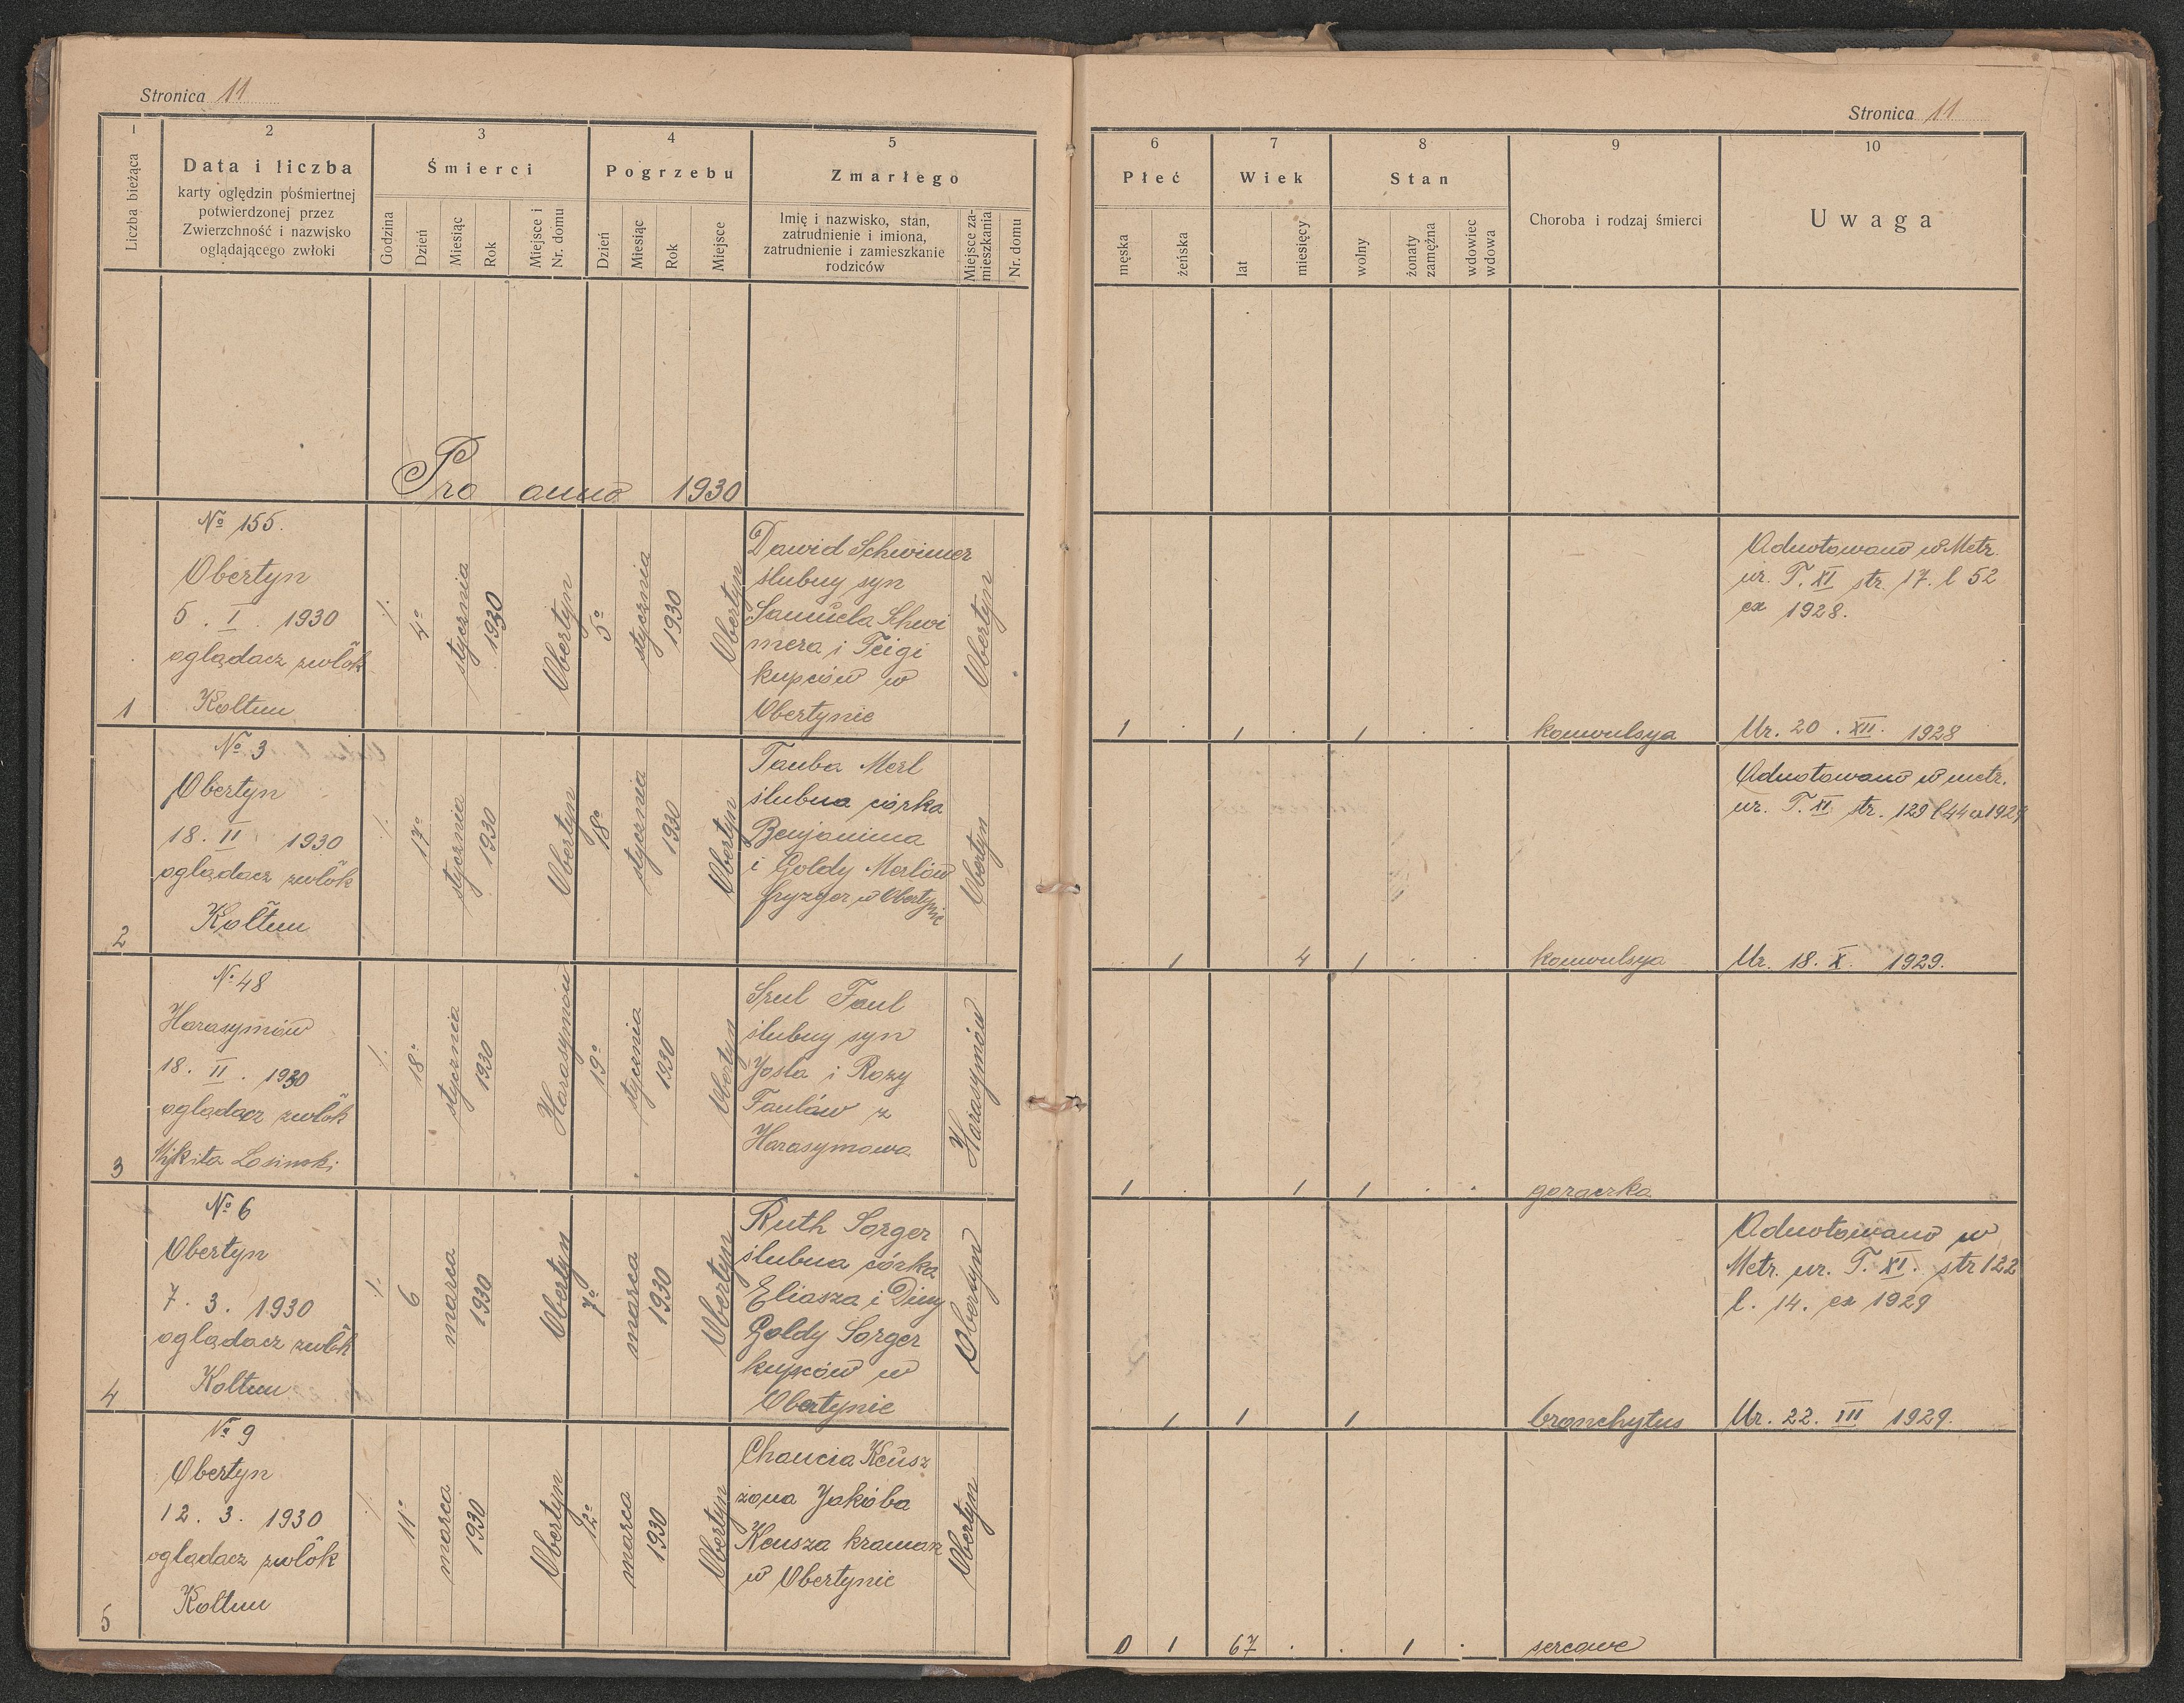 Stronica 11
1
Liczba bieżąca
2
Data i liczba
karty oględzin pośmiertnej
potwierdzonej przez
Zwierzchność i nazwisko
oglądającego zwłoki
3
Śmierci
Godzina
Dzień
Miesiąc
Rok
Miejsce i
Nr. domu
4
Pogrzebu
Dzień
Miesiąc
Rok
Miejsce
5
Zmarłego
Imię i nazwisko, stan,
zatrudnienie i imiona,
zatrudnienie i zamieszkanie
rodziców
Miejsce za-
mieszkania
Nr. domu
Stronica 11
6
Płeć
męska
żeńska
7
Wiek
lat
miesięcy
8
Stan
wolny
żonaty
zamężna
wdowiec
wdowa
9
Choroba i rodzaj śmierci
10
Uwaga
Pro anno 1930
1
No 155.
Obertyn
5. I. 1930
oglądacz zwłok
Koltun
4o
stycznia
1930
Obertyn
5o
stycznia
1930
Obertyn
Dawid Schwimer
ślubny syn
Samuela Schwi
mera i Feigi
kupców w
Obertynie
Obertyn
1 . 1 . 1 . .
konwulsya
Adnotowano w Metr.
ur. T. XI str. 17. l 52
ex 1928.
Ur. 20. XII. 1928
2
No 3
Obertyn
18. II 1930
oglądacz zwłok
Koltun
17o
stycznia
1930
Obertyn
18o
stycznia
1930
Obertyn
Tauba Merl
ślubna córka
Benjamina
i Goldy Merlów
fryzyer w Obertynie
Obertyn
. 1 4 1 . .
konwulsya
Adnotowano w metr.
ur. T. XI str. 129 l 44 ex 1929
Ur. 18. X. 1929.
3
No 48
Harasymów
18. II. 1930
oglądacz zwłok
Mykita Losinski
18o
stycznia
1930
Harasymów
19o
stycznia
1930
Obertyn
Srul Faul
ślubny syn
Josla i Rozy
Faulów z
Harasymowa
Harasymów
1 . 1 1 . .
gorączka
4
No 6
Obertyn
7. 3. 1930
oglądacz zwłok
Koltun
6
marca
1930
Obertyn
7o
marca
1930
Obertyn
Ruth Sorger
ślubna córka
Eliasza i Diny
Goldy Sorger
kupców w
Obertynie
Obertyn
1 1 1
bronchytus
Adnotowano w
Metr. ur. T. XI. str 122
l. 14. ex 1929
Ur. 22. III 1929.
5
No 9
Obertyn
12. 3. 1930
oglądacz zwłok
Koltun
11o
marca
1930
Obertyn
12o
marca
1930
Obertyn
Chancia Keusz
żona Jakóba
Keusza kraman
w Obertynie
Obertyn
0 1 67 . . 1 .
sercowe